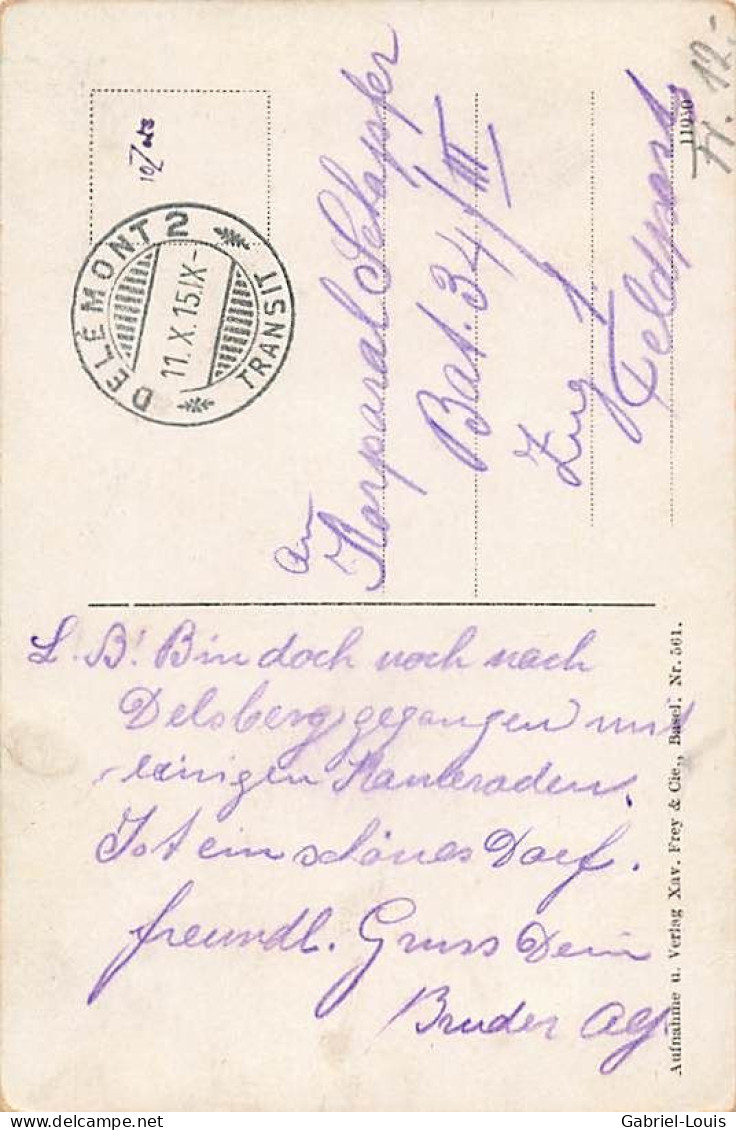 DELÉMONT 2
11. X. 15. IX-
TRANSIT
Fr. 12.-
11940
an
Korporal Schaffer
Bat. 34/III
Zug 1.
Feldpost
L. B! Bin doch noch nach
Delsberg gegangen mit
einigen Kameraden.
Ist ein schönes Dorf.
freundl. Gruss Dein
Bruder Alf.
Aufnahme u. Verlag Xav. Frey & Cie., Basel. Nr. 561.
Gabriel-Louis